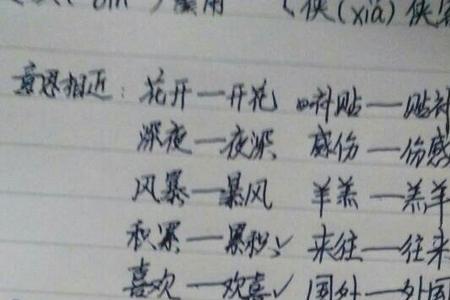 (xiá) 侠客
意思相近：花开—开花 补贴—贴补
深夜—夜深 感伤—伤感
风暴—暴风 羊羔—羔羊
积累—累积✓ 来往—往来
喜欢—欢喜✓ 国外—外国